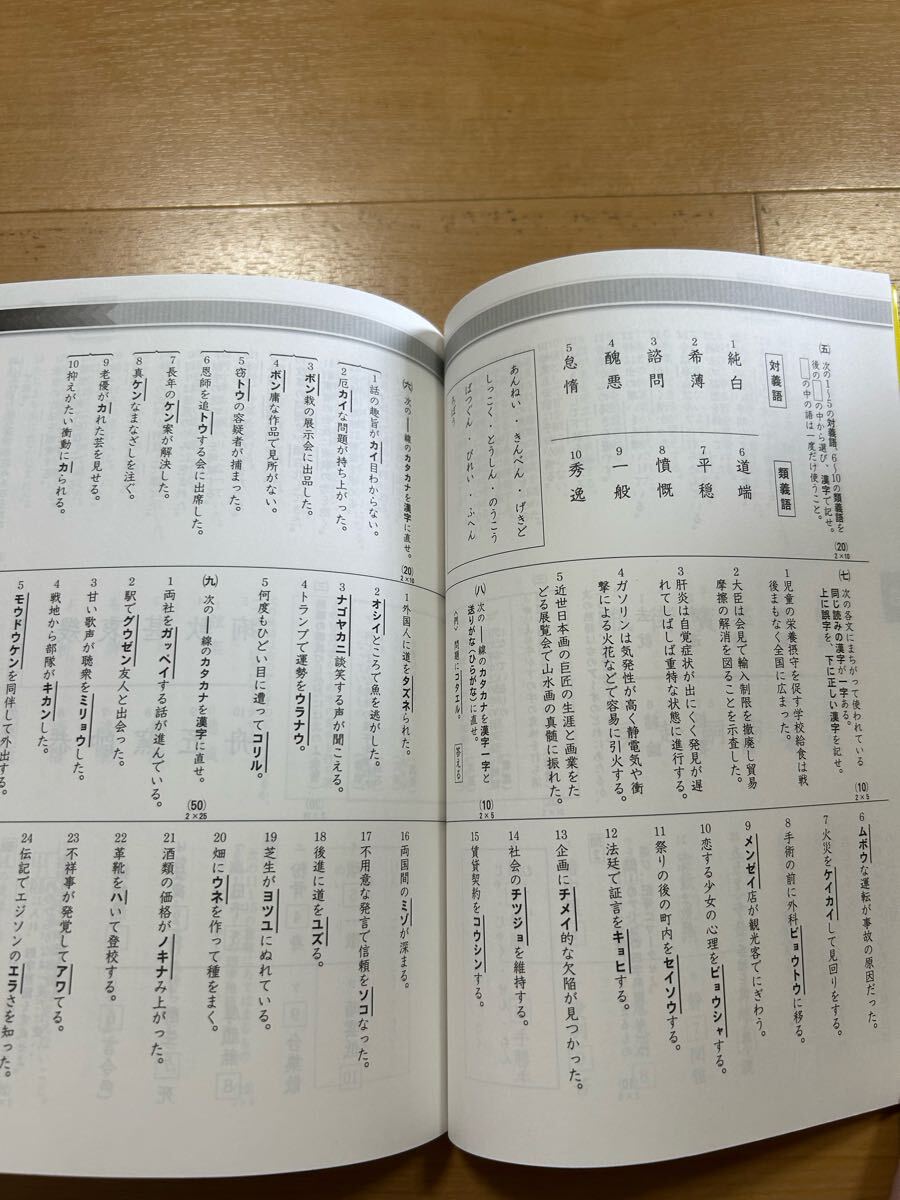 (五) 次の1~5の対義語、6~10の類義語を
後の□の中から選び、漢字で記せ。
□の中の語は一度だけ使うこと。
(20)
2×10
対義語
1 純白
2 希薄
3 諮問
4 醜悪
5 怠惰
類義語
6 道端
7 平穏
8 憤慨
9 一般
10 秀逸
あんねい・きんべん・げきど
しっこく・とうしん・のうこう
ばつぐん・びれい・ふへん
ろぼう
(六) 次の――線のカタカナを漢字に直せ。
(20)
2×10
1 話の趣旨がカイ目わからない。
2 厄カイな問題が持ち上がった。
3 ボン栽の展示会に出品した。
4 ボン庸な作品で見所がない。
5 窃トウの容疑者が捕まった。
6 恩師を追トウする会に出席した。
7 長年のケン案が解決した。
8 真ケンなまなざしを注ぐ。
9 老優がカれた芸を見せる。
10 抑えがたい衝動にカられる。
(七) 次の各文にまちがって使われている
同じ読みの漢字が一字ある。
上に誤字を、下に正しい漢字を記せ。
(10)
2×5
1 児童の栄養摂守を促す学校給食は戦
後まもなく全国に広まった。
2 大臣は会見で輸入制限を撤廃し貿易
摩擦の解消を図ることを示査した。
3 肝炎は自覚症状が出にくく発見が遅
れてしばしば重特な状態に進行する。
4 ガソリンは気発性が高く静電気や衝
撃による火花などで容易に引火する。
5 近世日本画の巨匠の生涯と画業をた
どる展覧会で山水画の真髄に振れた。
(八) 次の――線のカタカナを漢字一字と
送りがな(ひらがな)に直せ。
〈例〉問題にコタエル。 答える
(10)
2×5
1 外国人に道をタズネられた。
2 オシイところで魚を逃がした。
3 ナゴヤカニ談笑する声が聞こえる。
4 トランプで運勢をウラナウ。
5 何度もひどい目に遭ってコリル。
(九) 次の――線のカタカナを漢字に直せ。
(50)
2×25
1 両社をガッペイする話が進んでいる。
2 駅でグウゼン友人と出会った。
3 甘い歌声が聴衆をミリョウした。
4 戦地から部隊がキカンした。
5 モウドウケンを同伴して外出する。
6 ムボウな運転が事故の原因だった。
7 火災をケイカイして見回りをする。
8 手術の前に外科ビョウトウに移る。
9 メンゼイ店が観光客でにぎわう。
10 恋する少女の心理をビョウシャする。
11 祭りの後の町内をセイソウする。
12 法廷で証言をキョヒする。
13 企画にチメイ的な欠陥が見つかった。
14 社会のチツジョを維持する。
15 賃貸契約をコウシンする。
16 両国間のミゾが深まる。
17 不用意な発言で信頼をソコなった。
18 後進に道をユズる。
19 芝生がヨツユにぬれている。
20 畑にウネを作って種をまく。
21 酒類の価格がノキナみ上がった。
22 革靴をハいて登校する。
23 不祥事が発覚してアワてる。
24 伝記でエジソンのエラさを知った。